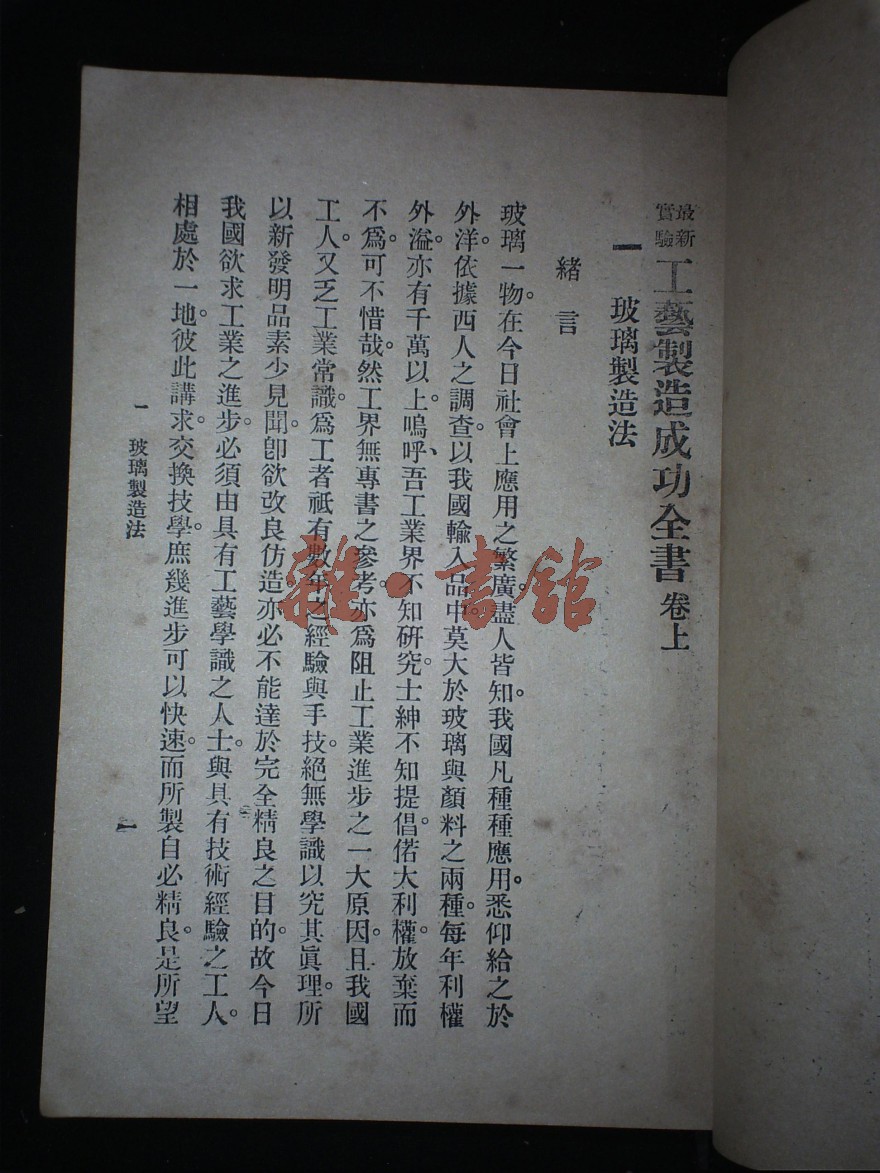 最新
實驗
工藝製造成功全書 卷上
一 玻璃製造法
緒言
玻璃一物。在今日社會上應用之繁廣。盡人皆知。我國凡種種應用。悉仰給之於
外洋。依據西人之調查。以我國輸入品中。莫大於玻璃與顏料之兩種。每年利權
外溢。亦有千萬以上。嗚呼、吾工業界不知研究。士紳不知提倡。偌大利權。放棄而
不爲。可不惜哉。然工界無專書之參考。亦爲阻止工業進步之一大原因。且我國
工人。又乏工業常識。爲工者祇有數年之經驗與手技。絕無學識以究其眞理。所
以新發明品。素少見聞。卽欲改良仿造。亦必不能達於完全精良之目的。故今日
我國欲求工業之進步。必須由具有工藝學識之人士。與具有技術經驗之工人。
相處於一地。彼此講求。交換技學。庶幾進步可以快速。而所製自必精良。是所望
一 玻璃製造法
一
雜·書館